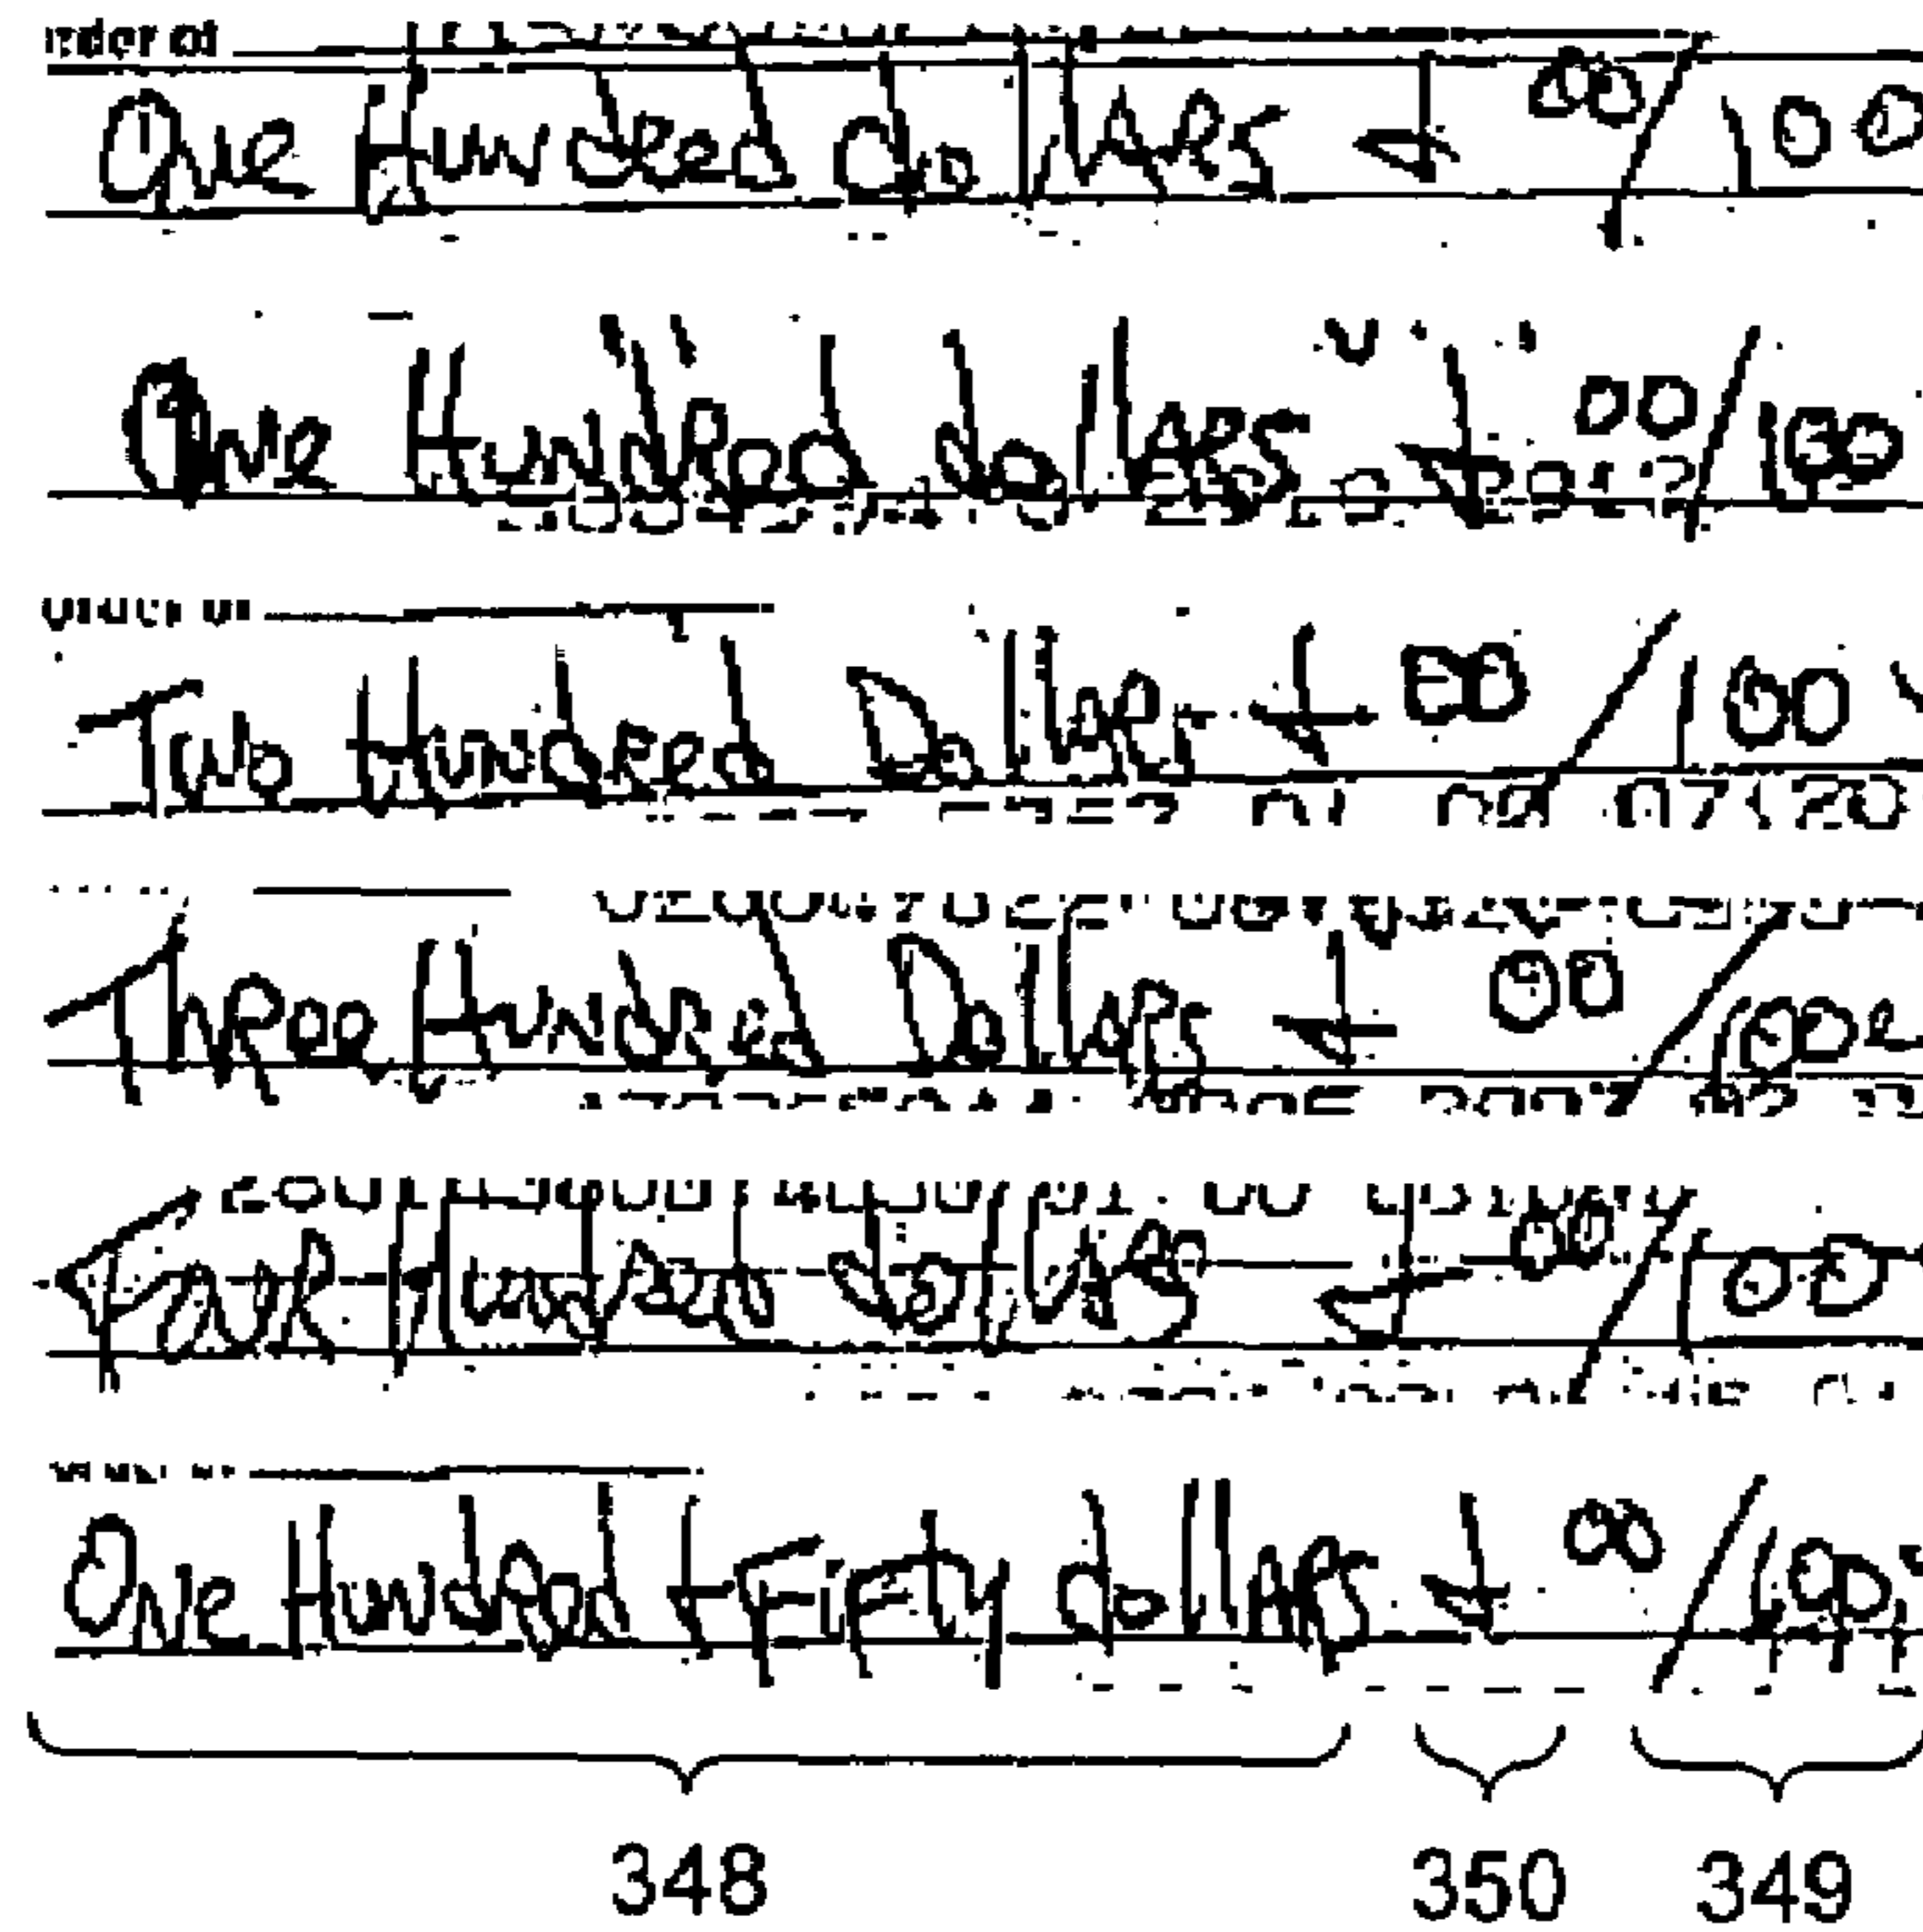 One Hundred dollars + 00/100
One Hundred dollars + 00/100
Two Hundred Dollars + 00/100
Three Hundred Dollars + 00/100
Four Hundred dollars + 00/100
One Hundred + Fifty dollars + 00/100
348 350 349